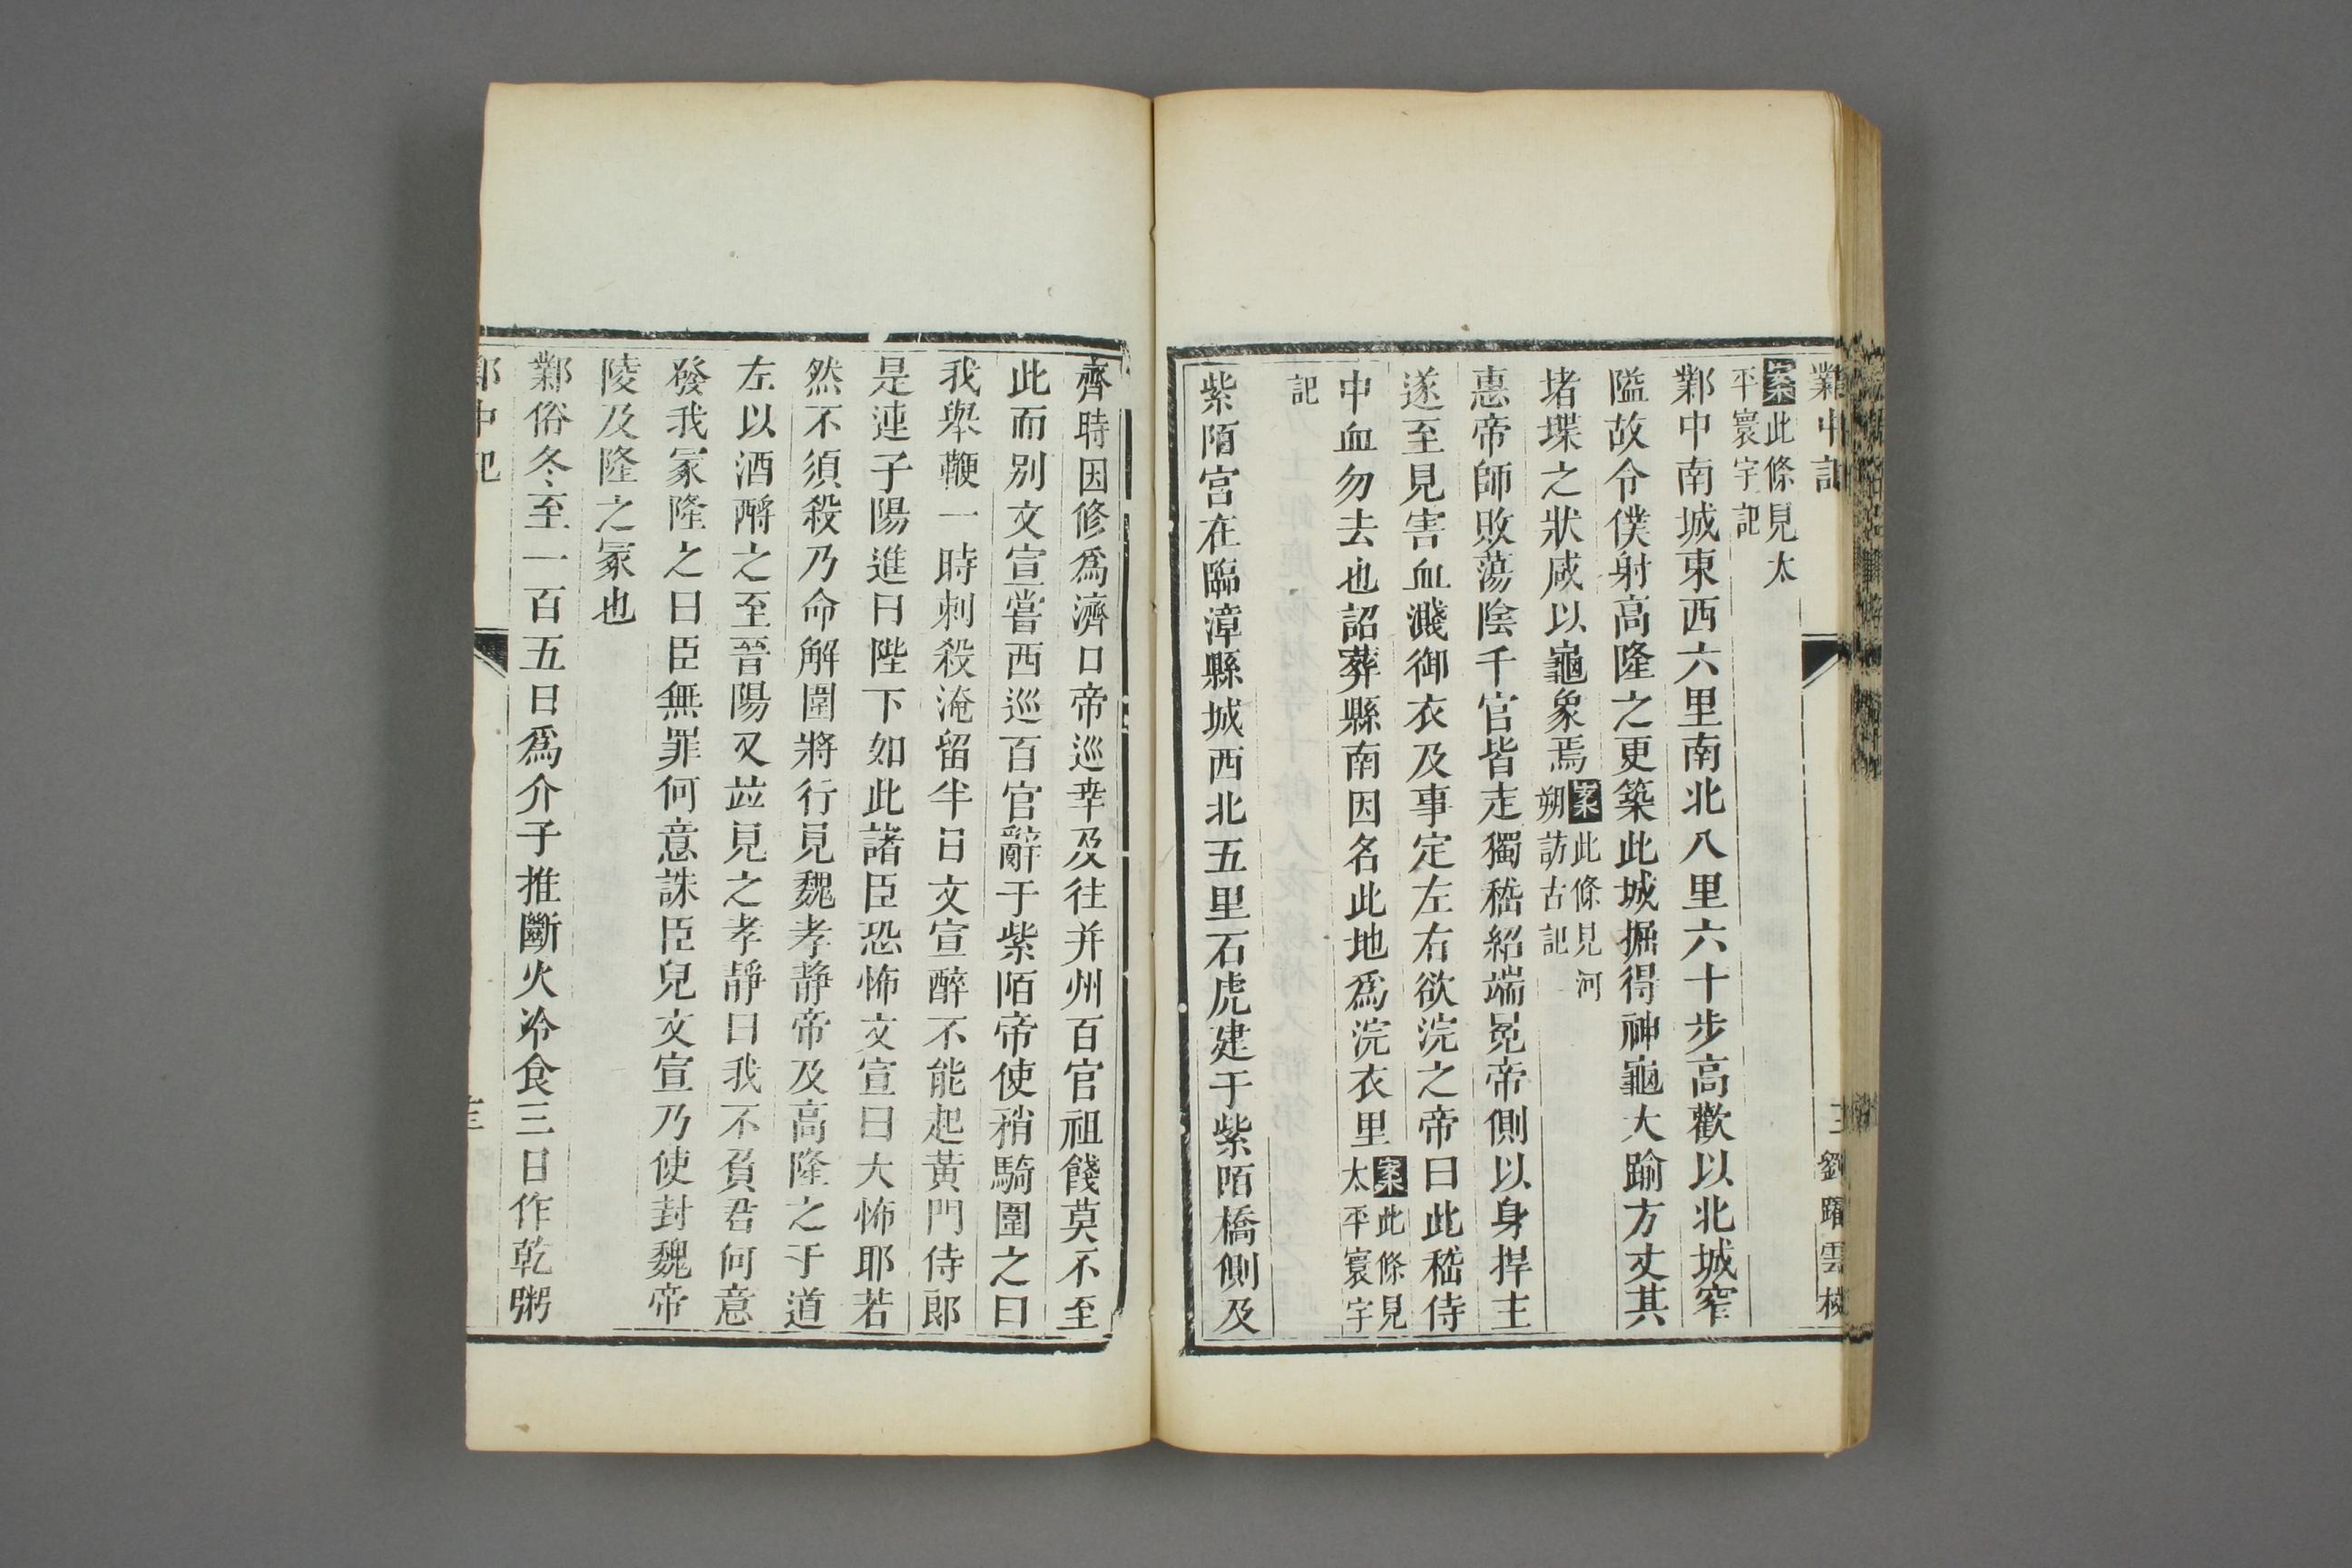 鄴中記
三 劉躍雲校
案此條見太
平寰宇記
鄴中南城東西六里南北八里六十步高歡以北城窄
隘故令僕射高隆之更築此城掘得神龜大踰方丈其
堵堞之狀咸以龜象焉案此條見河
朔訪古記
惠帝師敗蕩陰千官皆走獨嵇紹端冕帝側以身捍主
遂至見害血濺御衣及事定左右欲浣之帝曰此嵇侍
中血勿去也詔葬縣南因名此地爲浣衣里案此條見
太平寰宇
記
紫陌宮在臨漳縣城西北五里石虎建于紫陌橋側及
齊時因修爲濟口帝巡幸及往并州百官祖餞莫不至
此而别文宣嘗西巡百官辭于紫陌帝使稍騎圍之曰
我舉鞭一時刺殺淹留半日文宣醉不能起黃門侍郎
是連子陽進曰陛下如此諸臣恐怖文宣曰大怖耶若
然不須殺乃命解圍將行見魏孝静帝及高隆之于道
左以酒酹之至晉陽又竝見之孝靜曰我不負君何意
發我冢隆之曰臣無罪何意誅臣兒文宣乃使封魏帝
陵及隆之冢也
鄴俗冬至一百五日爲介子推斷火冷食三日作乾粥
中記